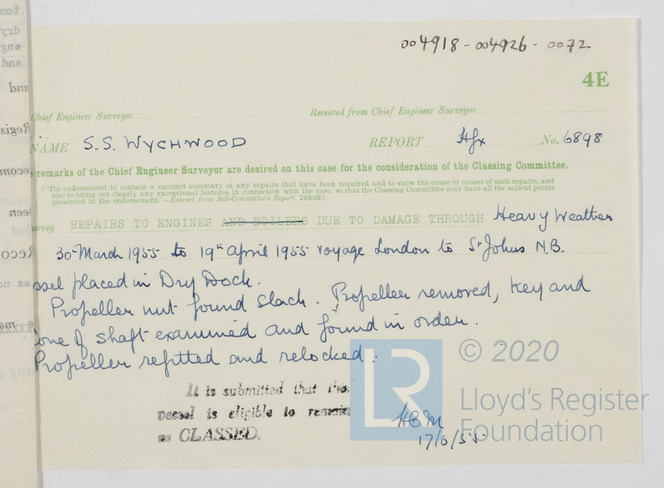 004918-004926-0072
4E
Chief Engineer Surveyor Received from Chief Engineer Surveyor
NAME S.S. WYCHWOOD REPORT Hfx No. 6898
remarks of the Chief Engineer Surveyor are desired on this case for the consideration of the Classing Committee.
(The endorsement to contain a succinct summary of any repairs that have been required and to show the cause or causes of such repairs, and
also to bring out clearly any exceptional features in connection with the case, so that the Classing Committee may have all the salient points
presented in the endorsement."—Extract from Sub-Committee's Report, 24/6/02.)
survey REPAIRS TO ENGINES AND BOILERS DUE TO DAMAGE THROUGH Heavy Weather
30 March 1955 to 19th April 1955 voyage London to St Johns N.B.
ssel placed in Dry Dock.
Propeller nut found slack. Propeller removed, key and
one of shaft examined and found in order.
Propeller refitted and relocked.
It is submitted that this
vessel is eligible to remain
as CLASSED.
17/6/55
LR
© 2020
Lloyd's Register
Foundation